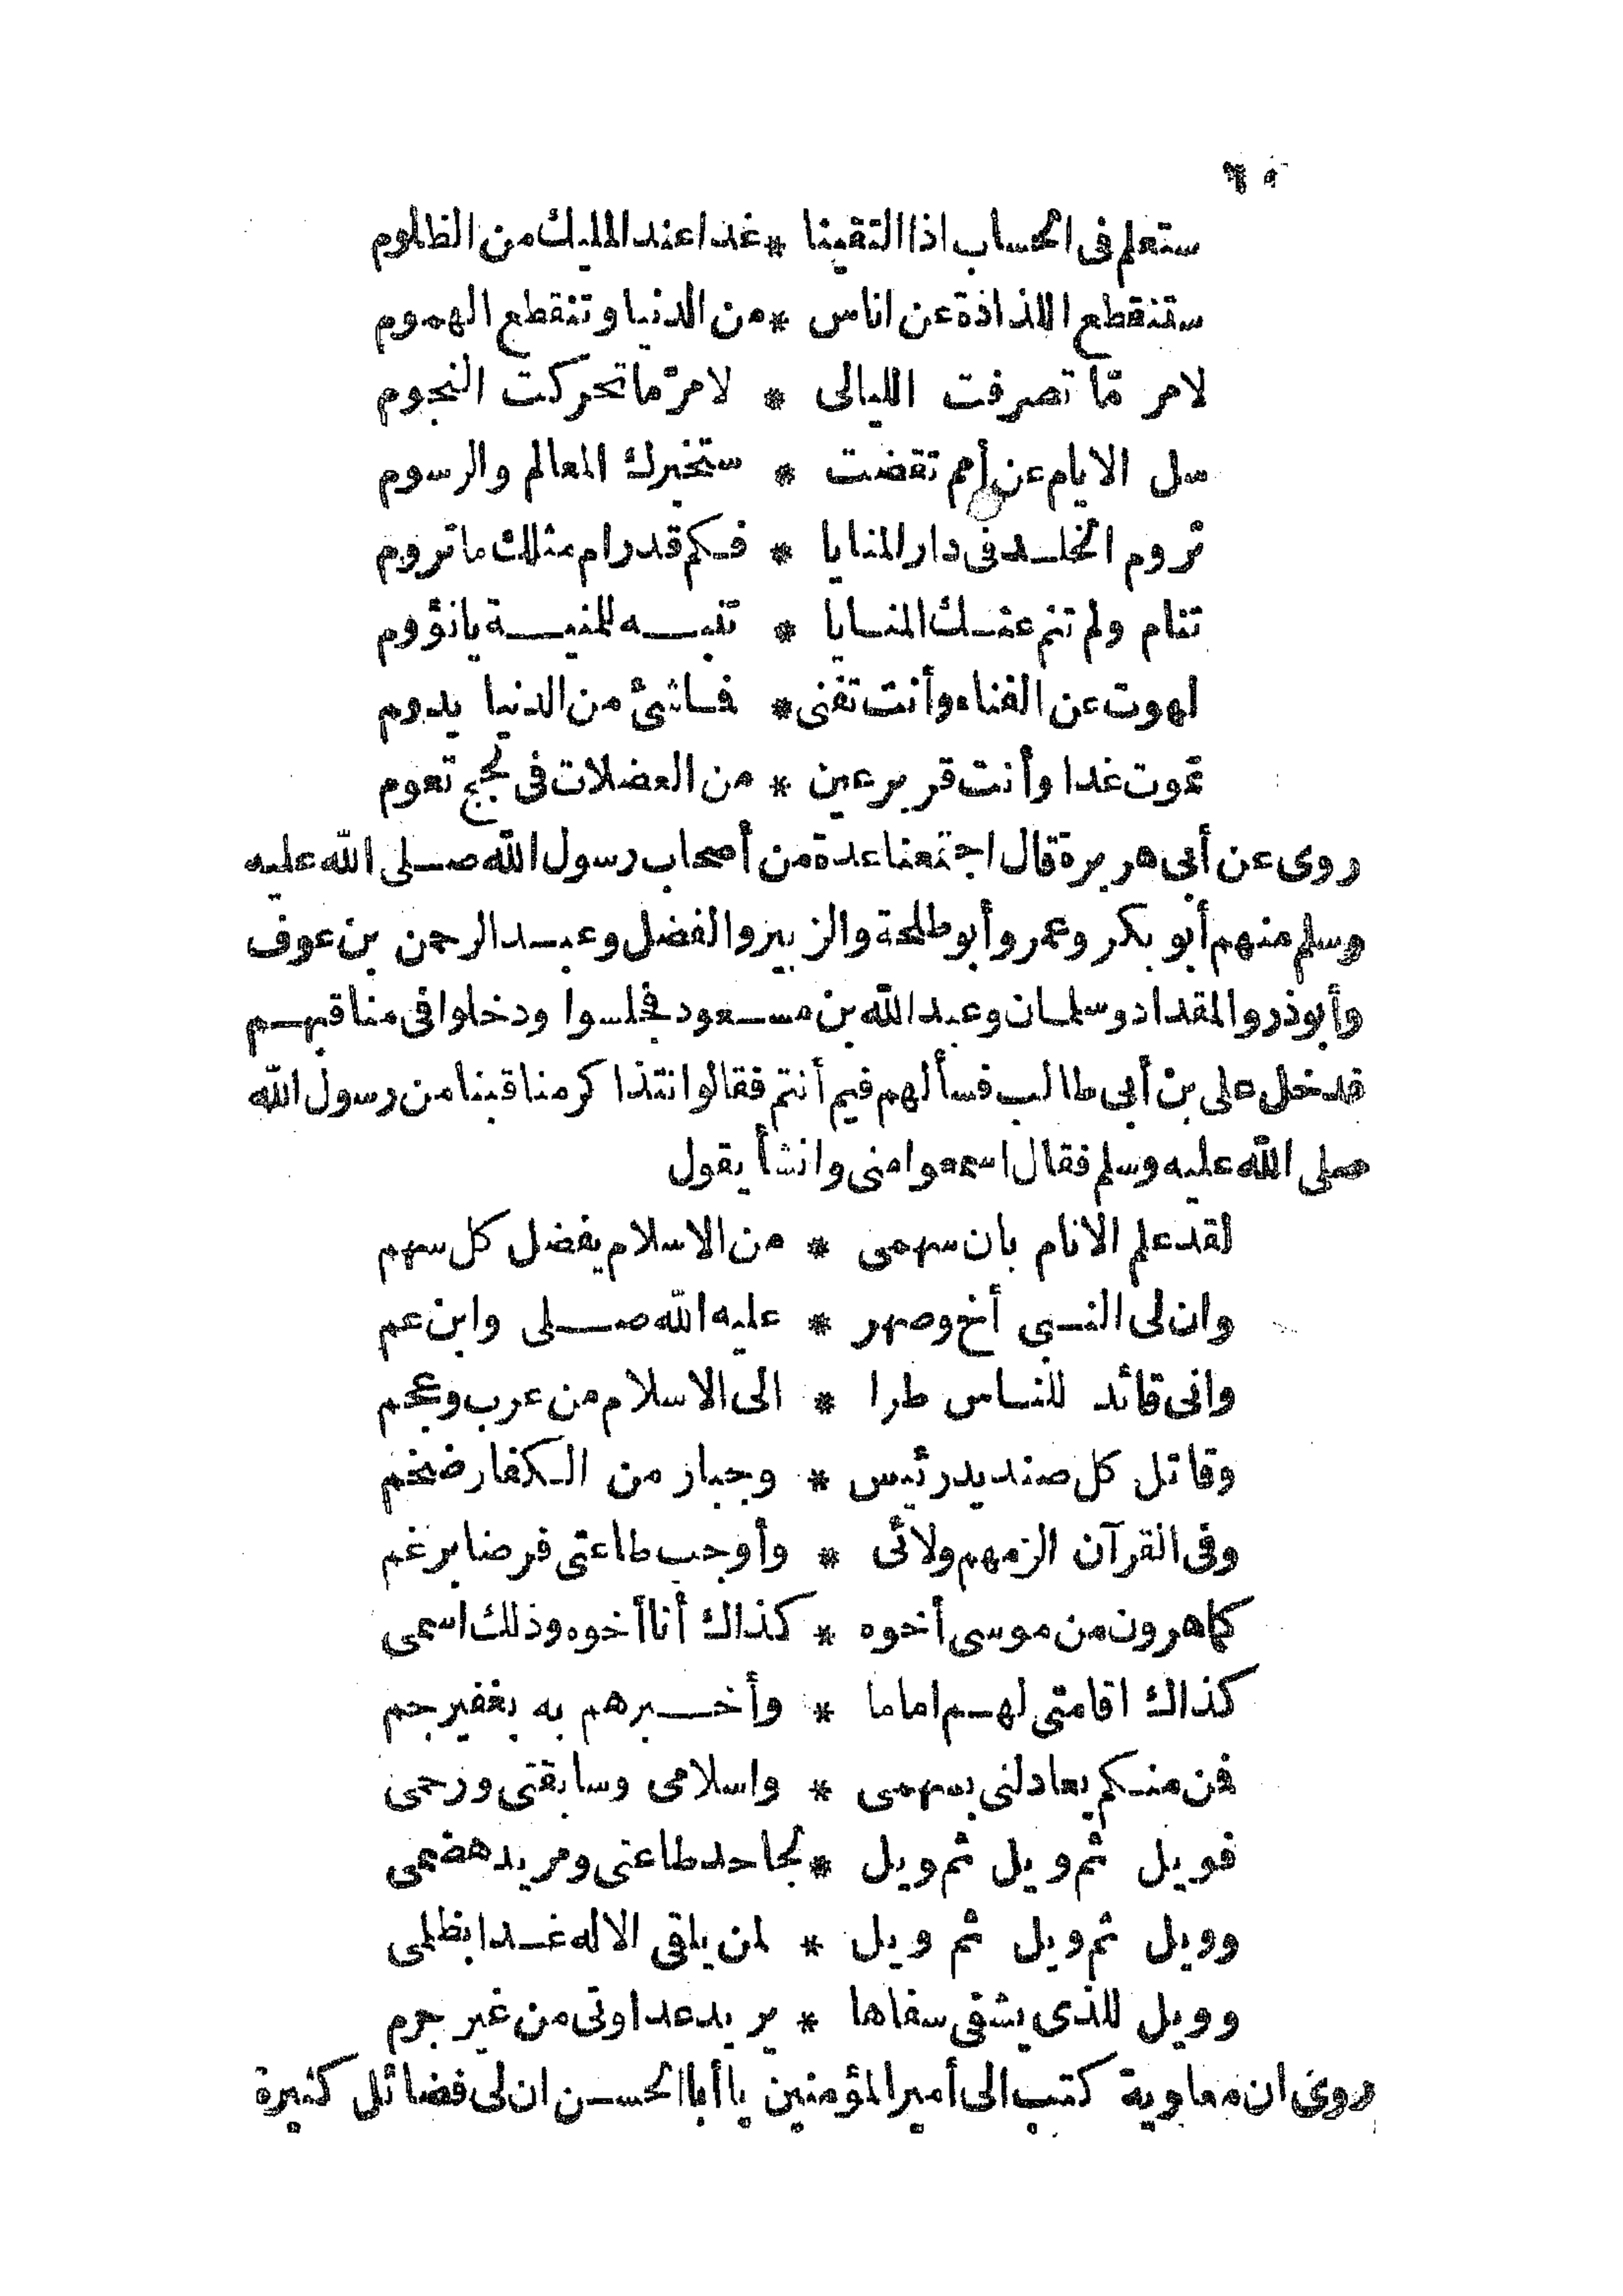 ستعلم فى الحساب اذا التقينا * غدا عند المليك من الظلوم
ستنقطع اللذاذة عن اناس * من الدنيا وتنقطع الهموم
لامر مّا تصرفت الليالى * لامر مّا تحركت النجوم
سل الايام عن أمم تقضت * ستخبرك المعالم والرسوم
تروم الخلد فى دار المنايا * فكم قد رام مثلك ما تروم
تنام ولم تنم عنك المنايا * تنبه للمنية يا نؤوم
لهوت عن الفناء وأنت تفنى * فما شئ من الدنيا يدوم
تموت غدا وأنت قرير عين * من العضلات فى لجج تعوم
روى عن أبى هريرة قال اجتمعنا عدة من أصحاب رسول الله صلى الله عليه
وسلم منهم أبو بكر وعمر وأبو طلحة والزبير والفضل وعبد الرحمن بن عوف
وأبوذر والمقداد وسلمان وعبد الله بن مسعود فجلسوا ودخلوا فى مناقبهم
فدخل على بن أبى طالب فسألهم فيم أنتم فقالوا نتذاكر مناقبنا من رسول الله
صلى الله عليه وسلم فقال اسمعوا منى وانشأ يقول
لقد علم الانام بان سهمى * من الاسلام يفضل كل سهم
وان لى النبى أخ وصهر * عليه الله صلى وابن عم
وانى قائد للناس طرا * الى الاسلام من عرب وعجم
وقاتل كل صنديد رئيس * وجبار من الكفار ضخم
وفى القرآن الزمهم ولائى * وأوجب طاعتى فرضا برغم
كما هرون من موسى أخوه * كذاك أنا أخوه وذلك اسمى
كذاك اقامتى لهم اماما * وأخبرهم به بغفير جم
فمن منكم يعادلنى بسهمى * واسلامى وسابقتى ورحمى
فويل ثم ويل ثم ويل * لجاحد طاعتى ومريد هضمى
وويل ثم ويل ثم ويل * لمن يلقى الاله غدا بظلمى
وويل للذى يشقى سفاها * يريد عداوتى من غير جرم
روى ان معاوية كتب الى أمير المؤمنين يا أبا الحسن ان لى فضائل كثيرة